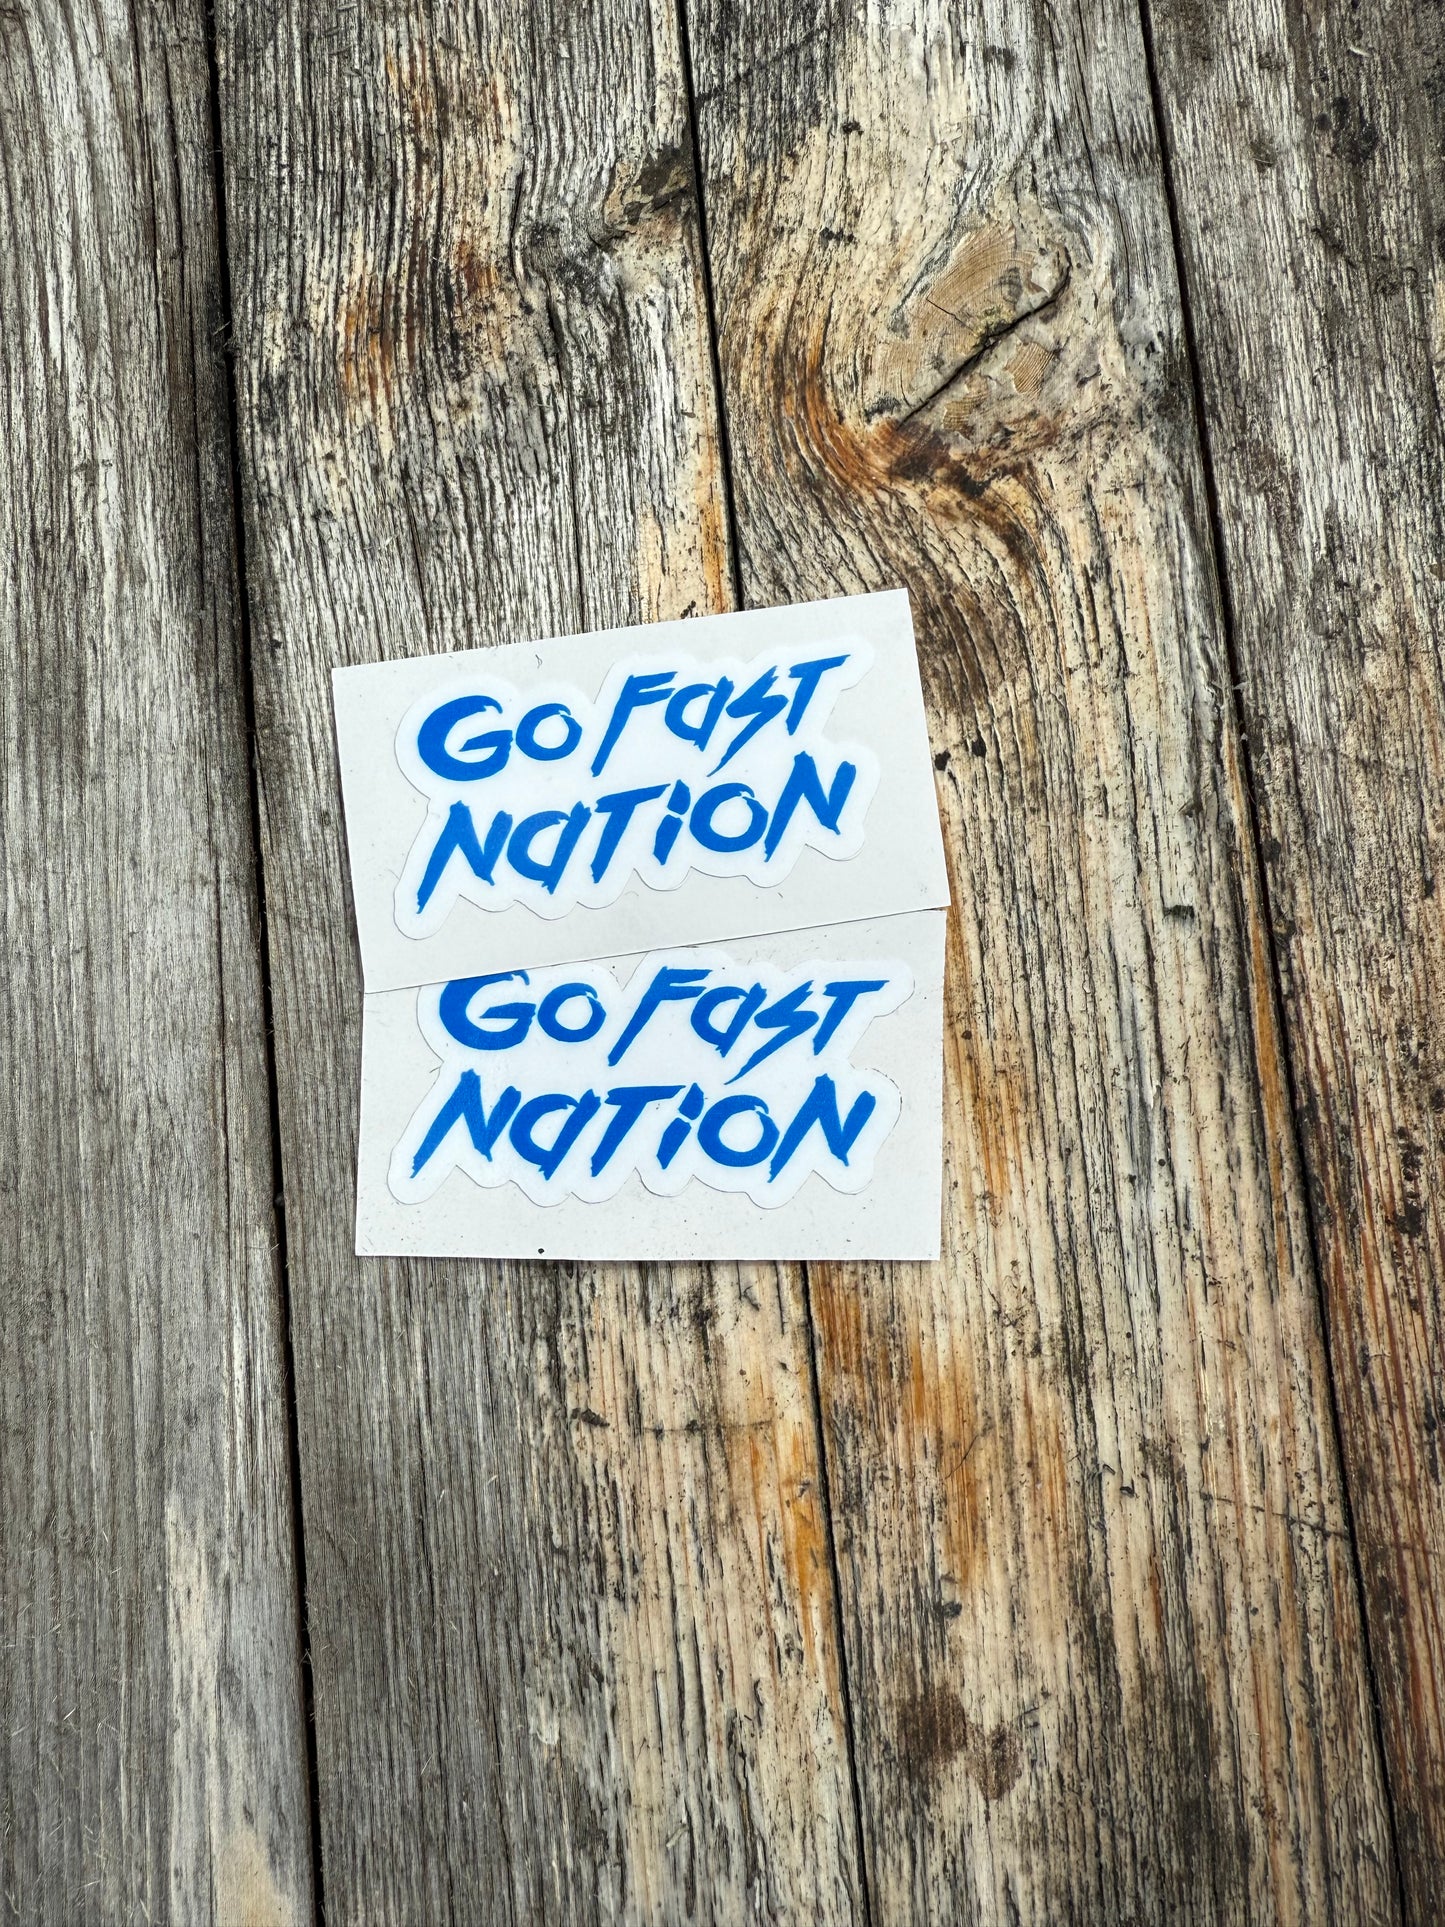 Go Fast
Nation
Go Fast
Nation